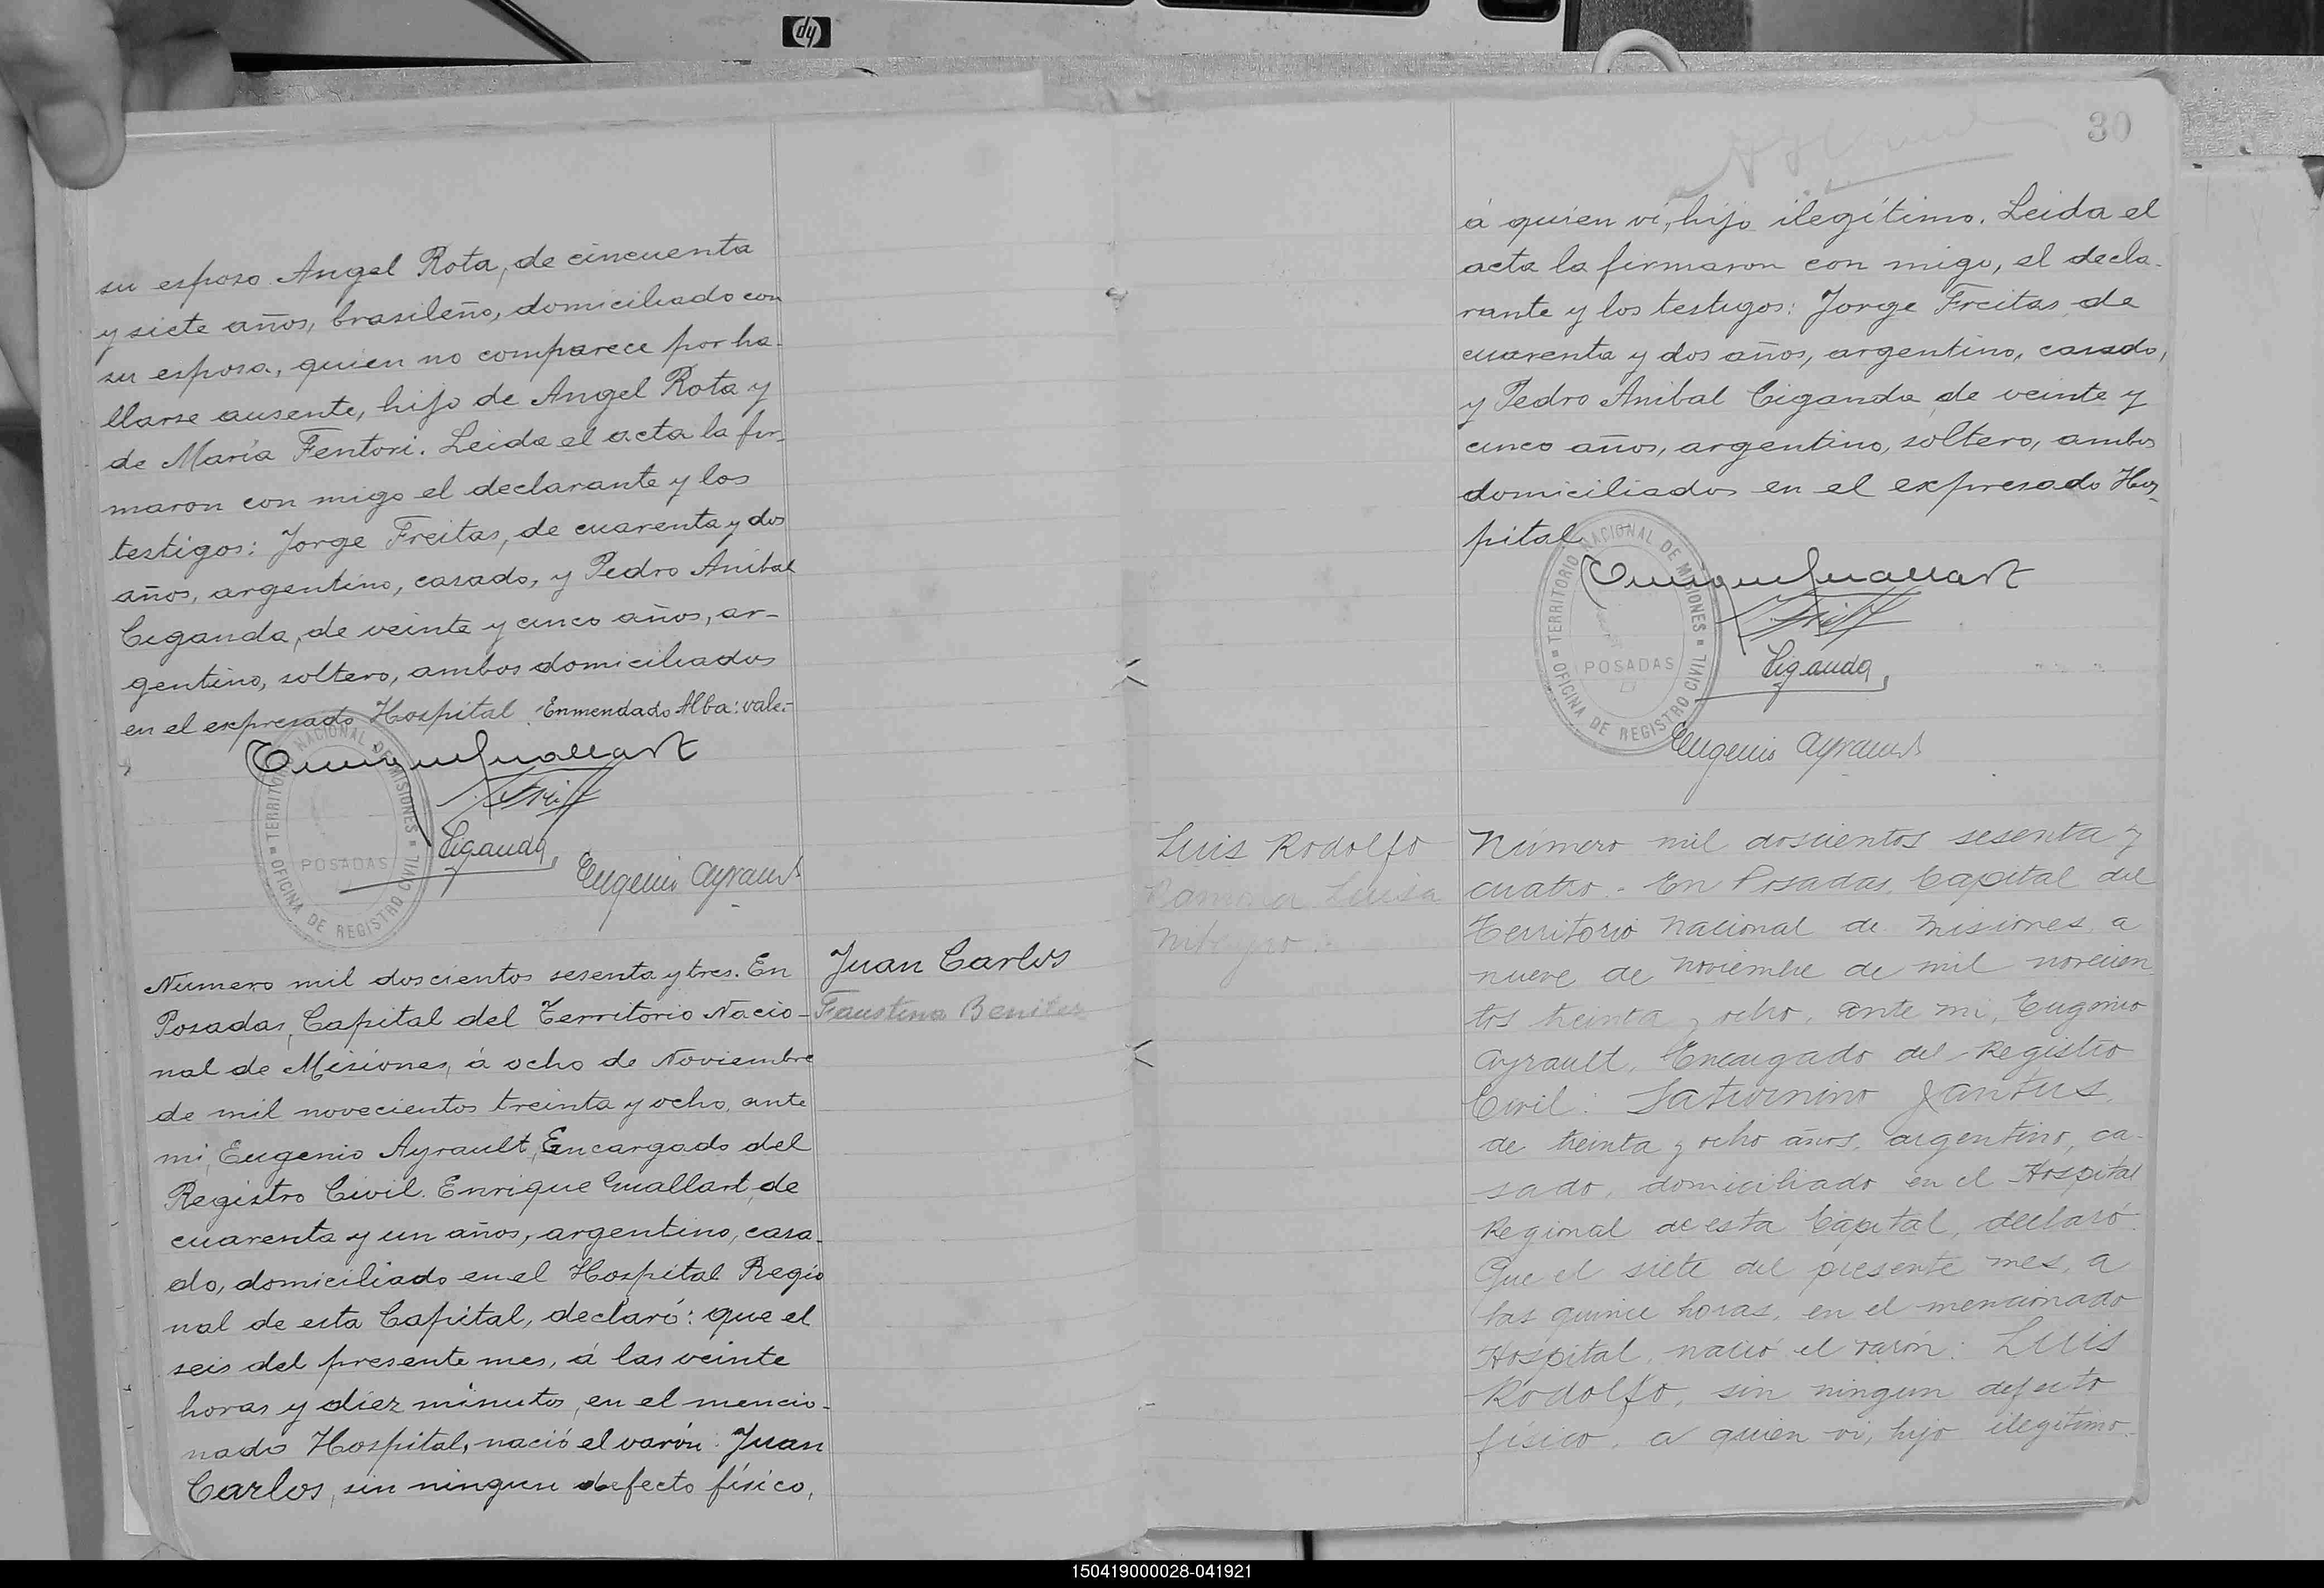 hp
su esposo Angel Rota, de cincuenta
y siete años, brasileño, domiciliado con
su esposa, quien no comparece por ha-
llarse ausente, hijo de Angel Rota y
de María Fentori. Leida el acta la fir-
maron con migo el declarante y los
testigos: Jorge Freitas, de cuarenta y dos
años, argentino, casado, y Pedro Anibal
Ciganda, de veinte y cinco años, ar-
gentino, soltero, ambos domiciliados
en el expresado Hospital. Enmendado Alba: vale.-
TERRITORIO NACIONAL DE MISIONES
POSADAS
OFICINA DE REGISTRO CIVIL
Enrique Guallart
Ciganda
Eugenio Ayrault
Numero mil doscientos sesenta y tres. En
Posadas, Capital del Territorio Nacio-
nal de Misiones, á ocho de Noviembre
de mil novecientos treinta y ocho, ante
mi, Eugenio Ayrault, Encargado del
Registro Civil. Enrique Guallart, de
cuarenta y un años, argentino, casa-
do, domiciliado en el Hospital Regio
nal de esta Capital, declaró: que el
seis del presente mes, á las veinte
horas y diez minutos, en el mencio-
nado Hospital, nació el varón: Juan
Carlos, sin ningun defecto físico,
Juan Carlos
Faustino Benitez
30
á quien ví, hijo ilegítimo. Leida el
acta la firmaron con migo, el decla-
rante y los testigos: Jorge Freitas, de
cuarenta y dos años, argentino, casado,
y Pedro Anibal Ciganda, de veinte y
cinco años, argentino, soltero, ambos
domiciliados en el expresado Hos-
pital.
TERRITORIO NACIONAL DE MISIONES
POSADAS
OFICINA DE REGISTRO CIVIL
Enrique Guallart
Ciganda
Eugenio Ayrault
Luis Rodolfo
Ramona Luisa
Número mil doscientos sesenta y
cuatro.- En Posadas, Capital del
Territorio Nacional de Misiones, a
nueve de Noviembre de mil novecien
tos treinta y ocho, ante mi, Eugenio
Ayrault, Encargado del Registro
Civil: Saturnino Jantus,
de treinta y ocho años, argentino, ca-
sado, domiciliado en el Hospital
Regional de esta Capital, declaró:
Que el siete del presente mes, a
las quince horas, en el mencionado
Hospital, nació el varón: Luis
Rodolfo, sin ningun defecto
físico, a quien vi, hijo ilegítimo.
150419000028-041921